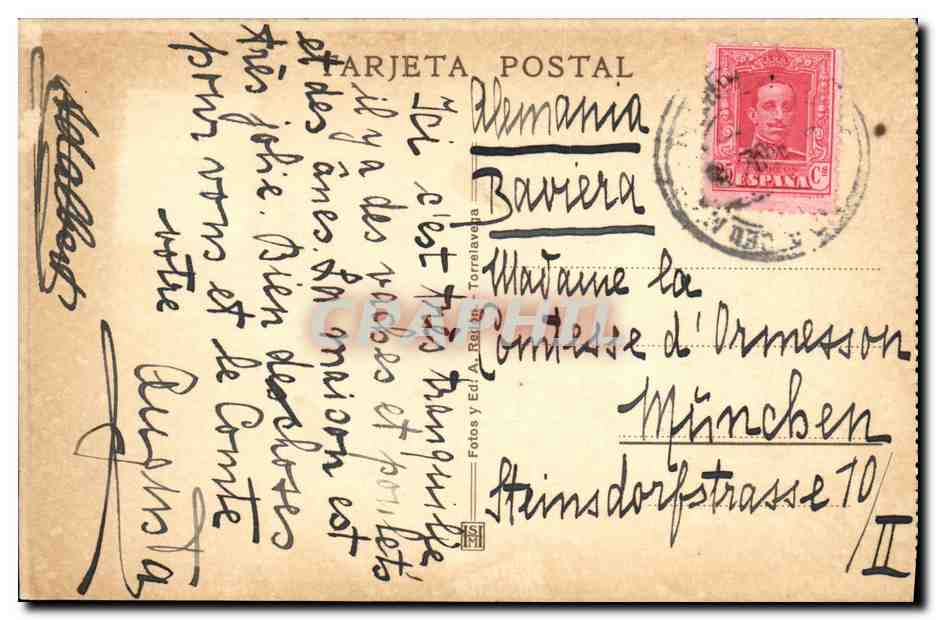 TARJETA POSTAL
Alemania
Baviera
Madame la
Comtesse d'Ormesson
München
Steinsdorfstrasse 10/II
ESPAÑA
Cs
Ici c'est très tranquille
il y a des vaches et poulets
et des ânes. La maison est
très jolie. Bien des choses
pour vous et le Comte
votre
Augusta
Fotos y Ed. A. Redón - Torrelavega
CARAPHIL